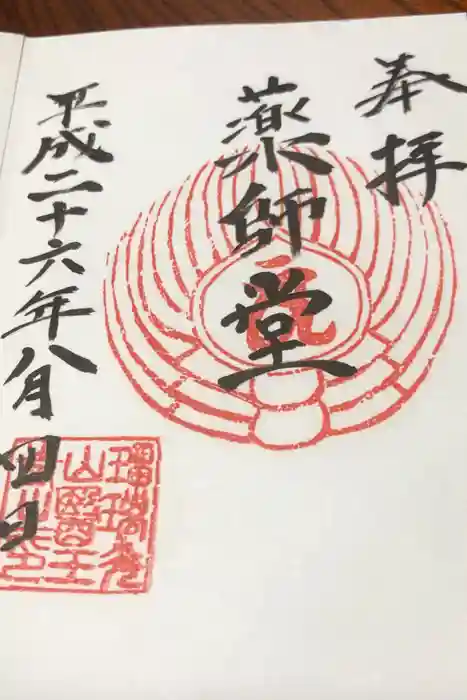 奉拝
薬師堂
平成二十六年八月四日